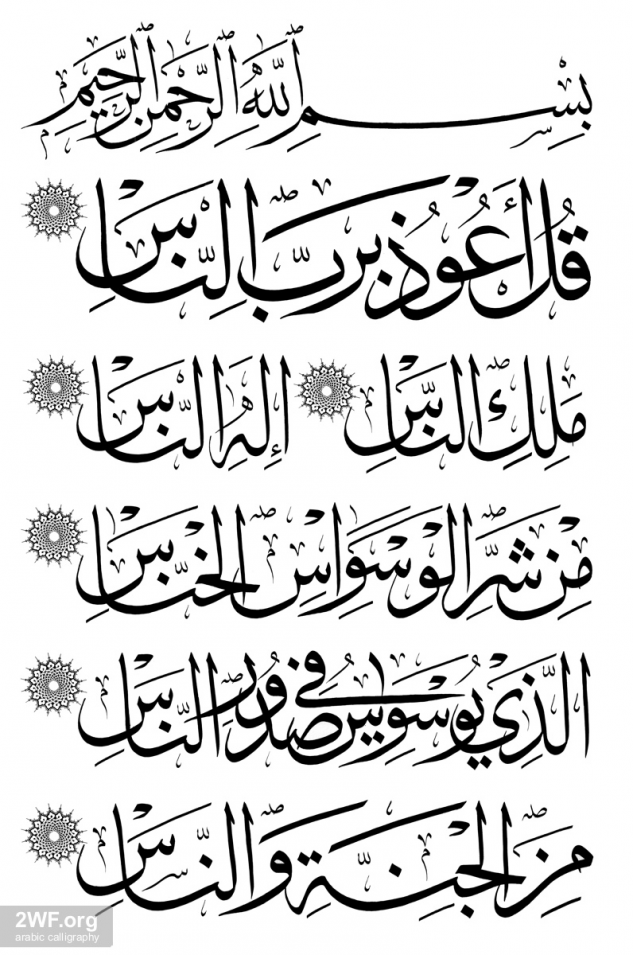 بِسْمِ اللَّهِ الرَّحْمَنِ الرَّحِيمِ
قُلْ أَعُوذُ بِرَبِّ النَّاسِ
مَلِكِ النَّاسِ إِلَهِ النَّاسِ
مِنْ شَرِّ الْوَسْوَاسِ الْخَنَّاسِ
الَّذِي يُوَسْوِسُ فِي صُدُورِ النَّاسِ
مِنَ الْجِنَّةِ وَالنَّاسِ
2WF.org
arabic calligraphy